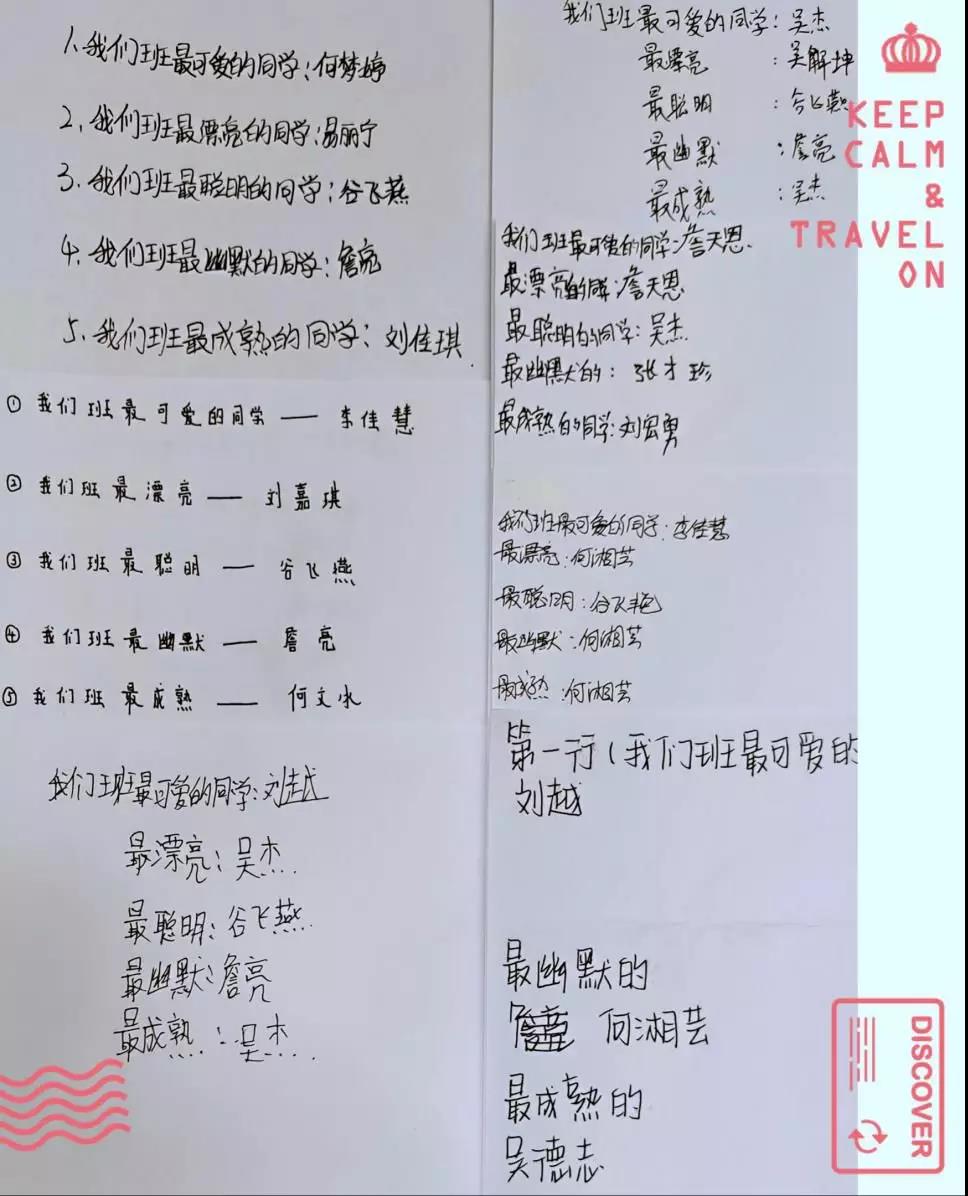 1、我们班最可爱的同学：何梦婷
2、我们班最漂亮的同学：易丽宁
3、我们班最聪明的同学：谷飞燕
4、我们班最幽默的同学：詹亮
5、我们班最成熟的同学：刘佳琪
① 我们班最可爱的同学——李佳慧
② 我们班最漂亮——刘嘉琪
③ 我们班最聪明——谷飞燕
④ 我们班最幽默——詹亮
⑤ 我们班最成熟——何文水
我们班最可爱的同学：刘越
最漂亮：吴杰
最聪明：谷飞燕
最幽默：詹亮
最成熟：吴杰
我们班最可爱的同学：吴杰
最漂亮：吴解坤
最聪明：谷飞燕
最幽默：詹亮
最成熟：吴杰
我们班最可爱的同学：詹天恩
最漂亮的同学：詹天恩
最聪明的同学：吴杰
最幽默的：张才珍
最成熟的同学：刘宏勇
我们班最可爱的同学：李佳慧
最漂亮：何湘芸
最聪明：谷飞艳
最幽默：何湘芸
最成熟：何湘芸
第一行（我们班最可爱的
刘越
最幽默的
何湘芸
最成熟的
吴德志
KEEP
CALM
&
TRAVEL
ON
DISCOVER